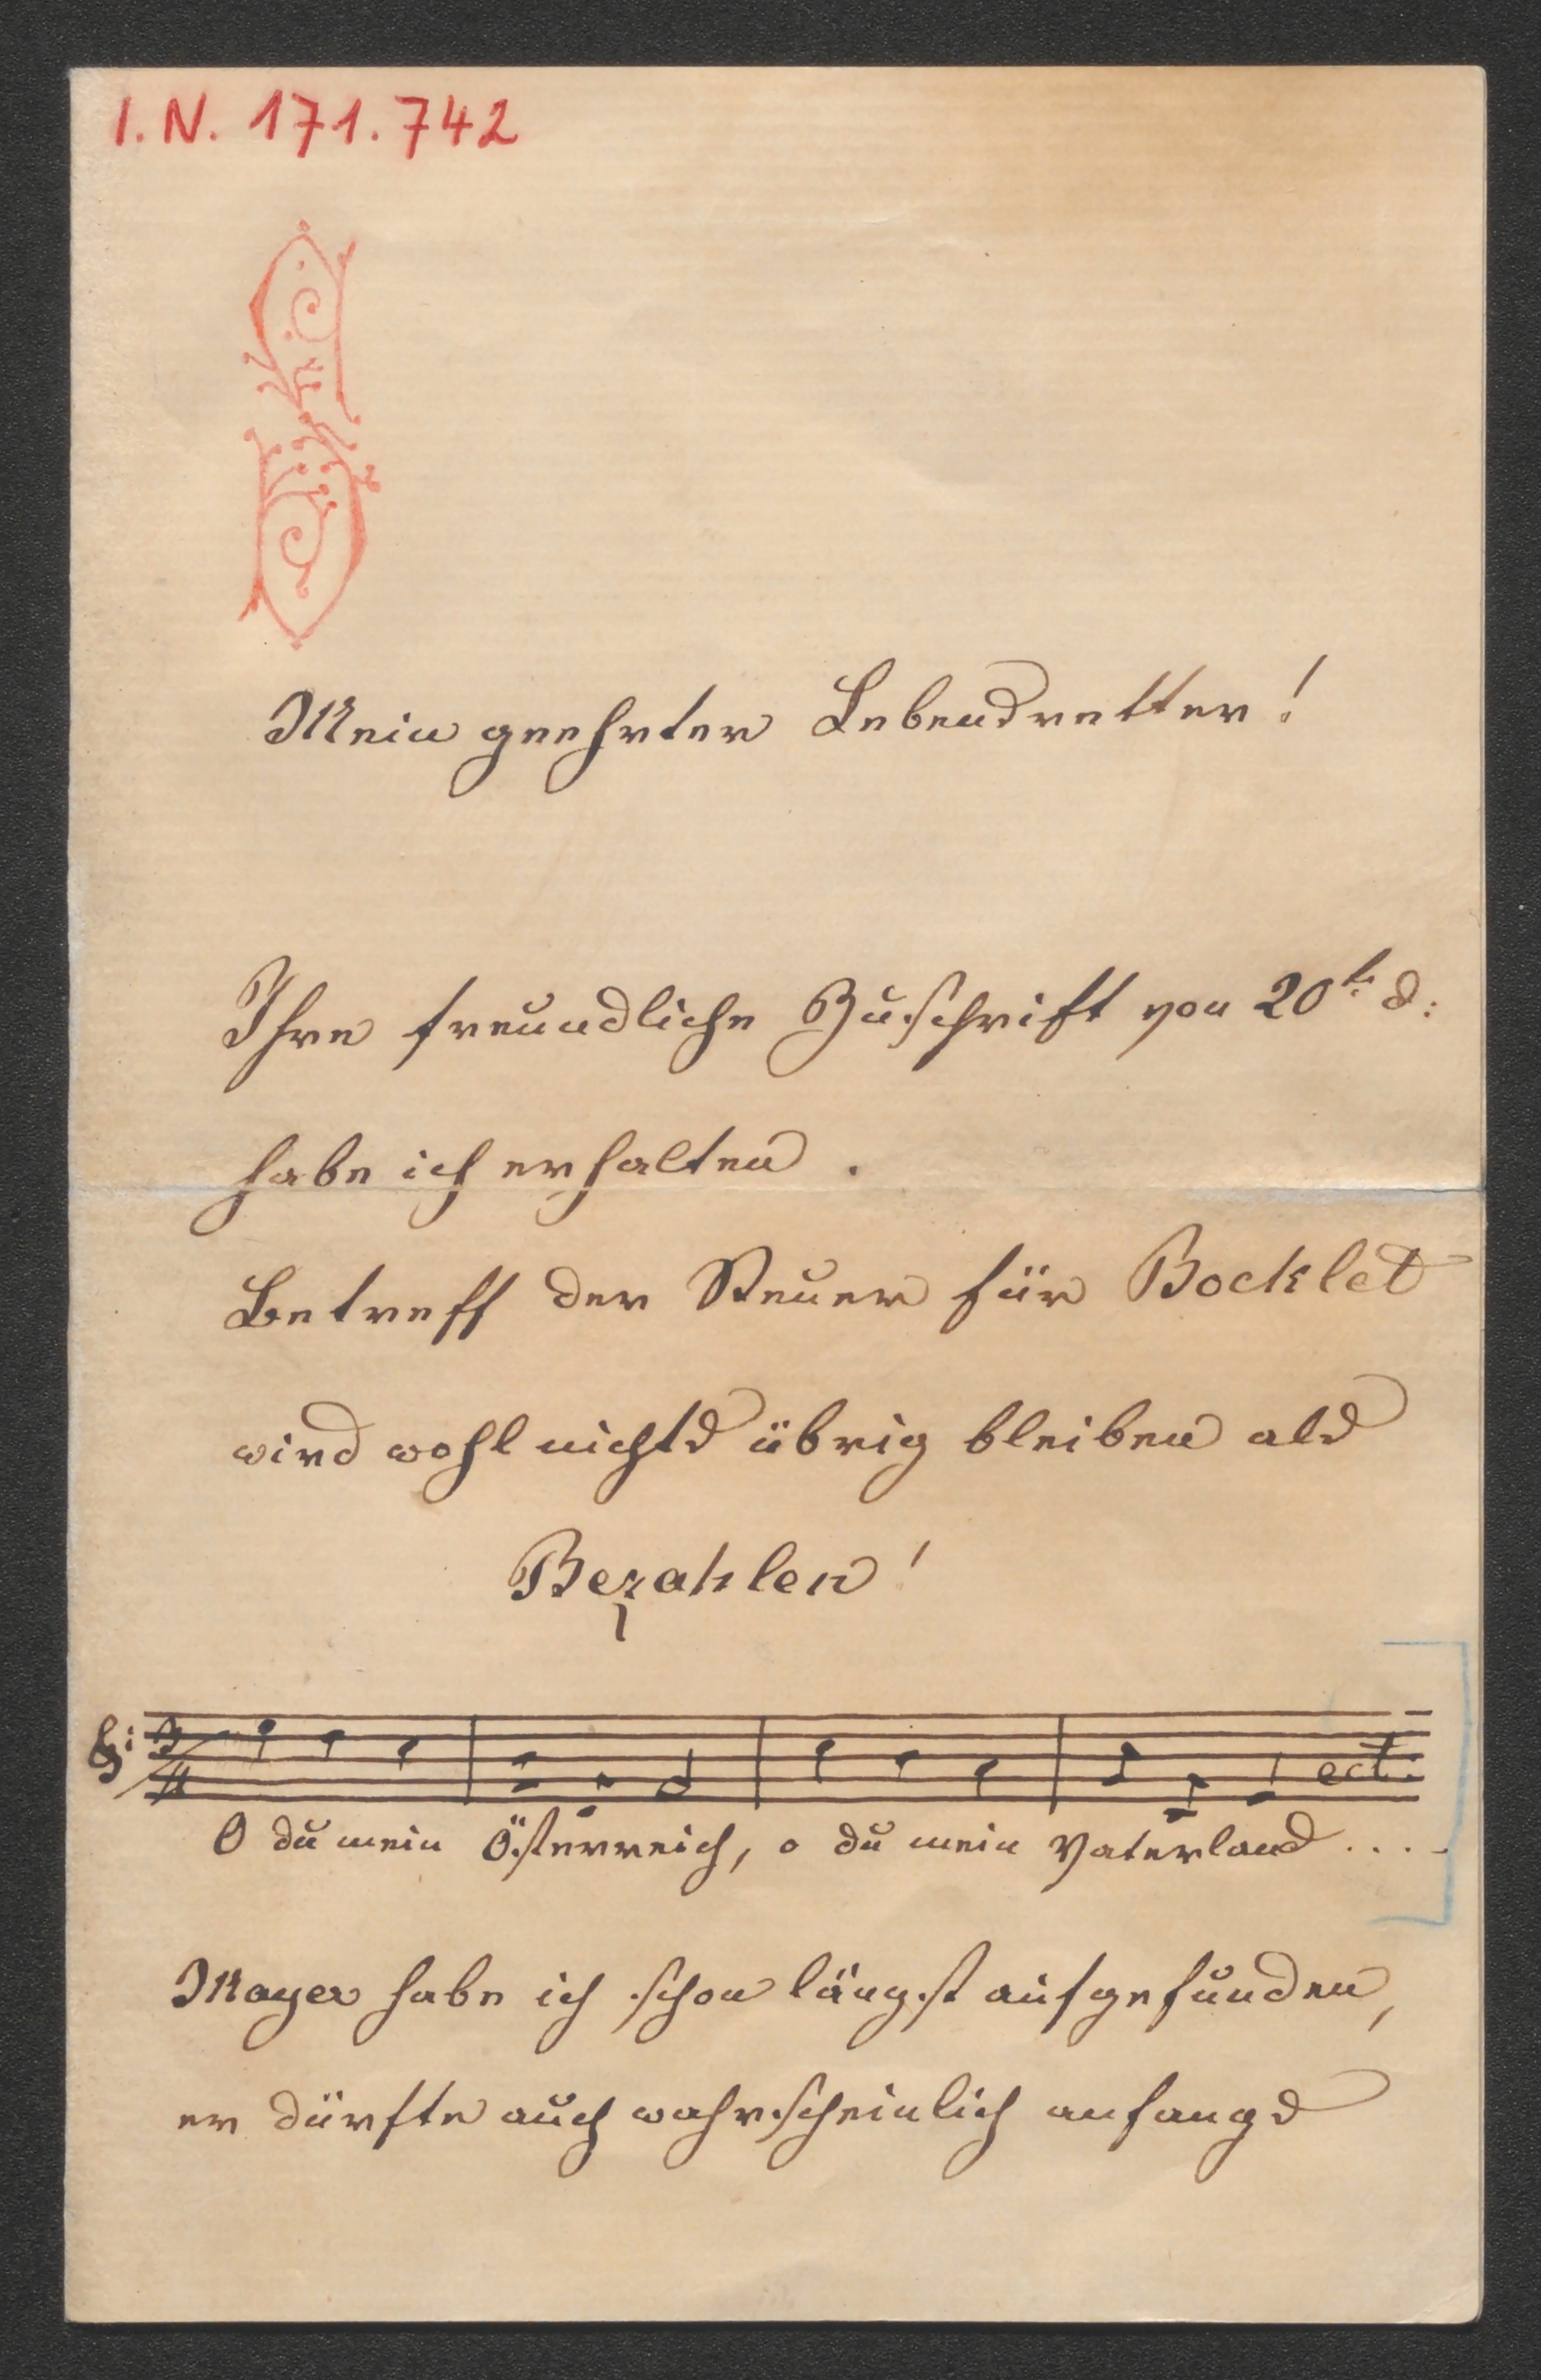 I. N. 171.742
Mein geehrter Lebensretter!
Ihre freundliche Zuschrift von 20t. d:
habe ich erhalten.
Betreff der Steuer für Bocklet
wird wohl nichts übrig bleiben als
Bezahlen!
ect.
O du mein Österreich, o du mein Vaterland ....
Mayer habe ich schon längst aufgefunden,
er dürfte auch wahrscheinlich anfangs